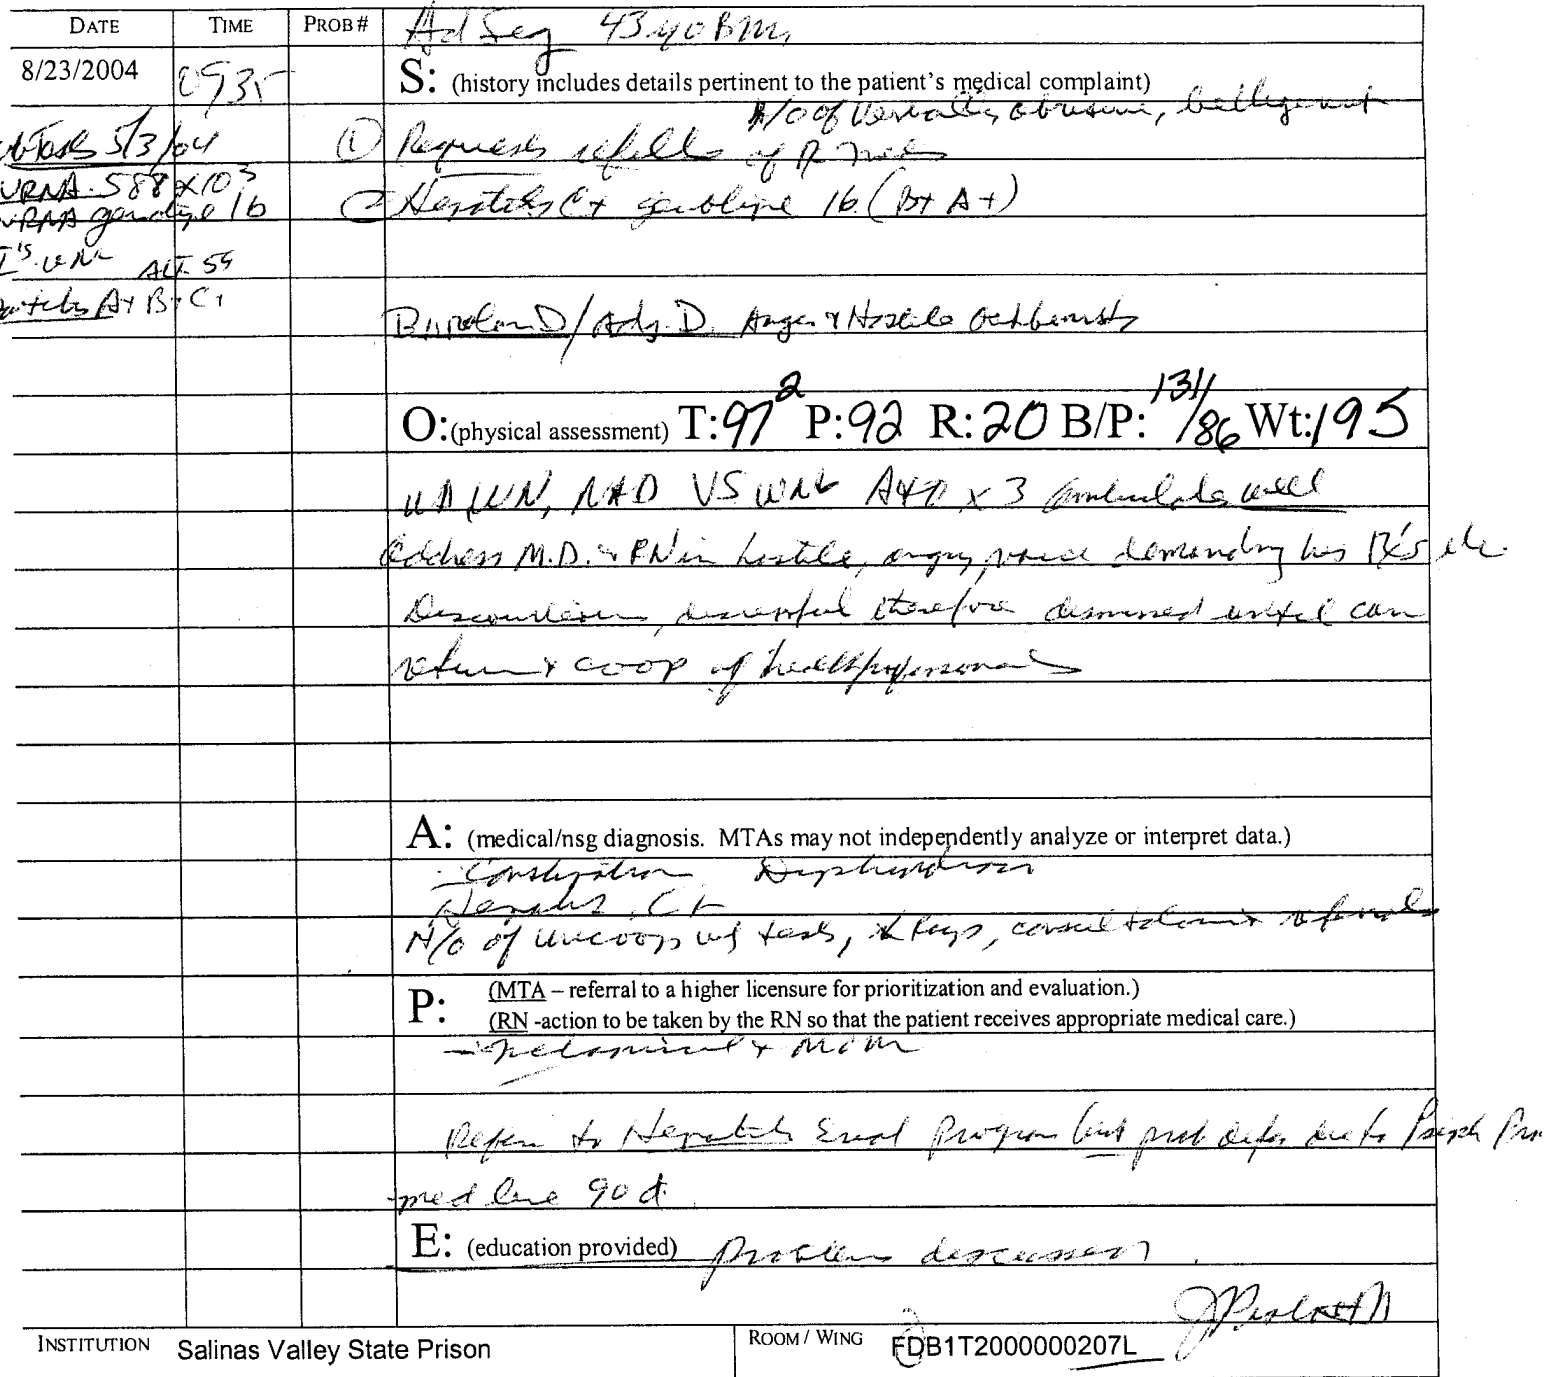 DATE TIME PROB # Ad Seg 43 yo BM
8/23/2004 0935 S: (history includes details pertinent to the patient's medical complaint)
H/O of verbally abusive, belligerent
Tests 5/3/04 ① Requests refills of
VRNA 588 x 10³
VRNA genotype 1b Hepatitis C+ genotype 1b (B+ A+)
ALT 59
A+ B+ C+
Bipolar D/Adj. D. Anger & Hostile Outbursts
O: (physical assessment) T: 97² P: 92 R: 20 B/P: 131/86 Wt: 195
WN, NAD VS WNL A&O x 3 ambulates well
Address M.D. & RN in hostile, angry voice demanding his Rx's etc.
Discourteous, therefore dismissed until can
return & coop health professionals
A: (medical/nsg diagnosis. MTAs may not independently analyze or interpret data.)
- Constipation
C+
H/o of uncoop w/ tests, X Rays, consultations & referrals
P: (MTA – referral to a higher licensure for prioritization and evaluation.)
(RN -action to be taken by the RN so that the patient receives appropriate medical care.)
- & MOM
Refer to Hepatitis Eval Program but prob defer due to Psych
med line 90 d.
E: (education provided) problems discussed.
INSTITUTION Salinas Valley State Prison ROOM / WING FDB1T2000000207L